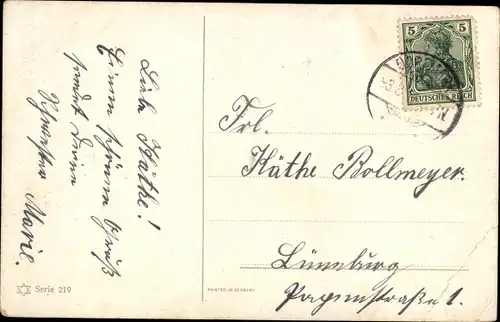 Liebe Käthe!
Einen schönen Gruß
sendet Deine
Marie.
Serie 219
PRINTED IN GERMANY
5 5
DEUTSCHES REICH
Frl.
Käthe Bollmeyer.
Lüneburg
Pagenstraße 1.